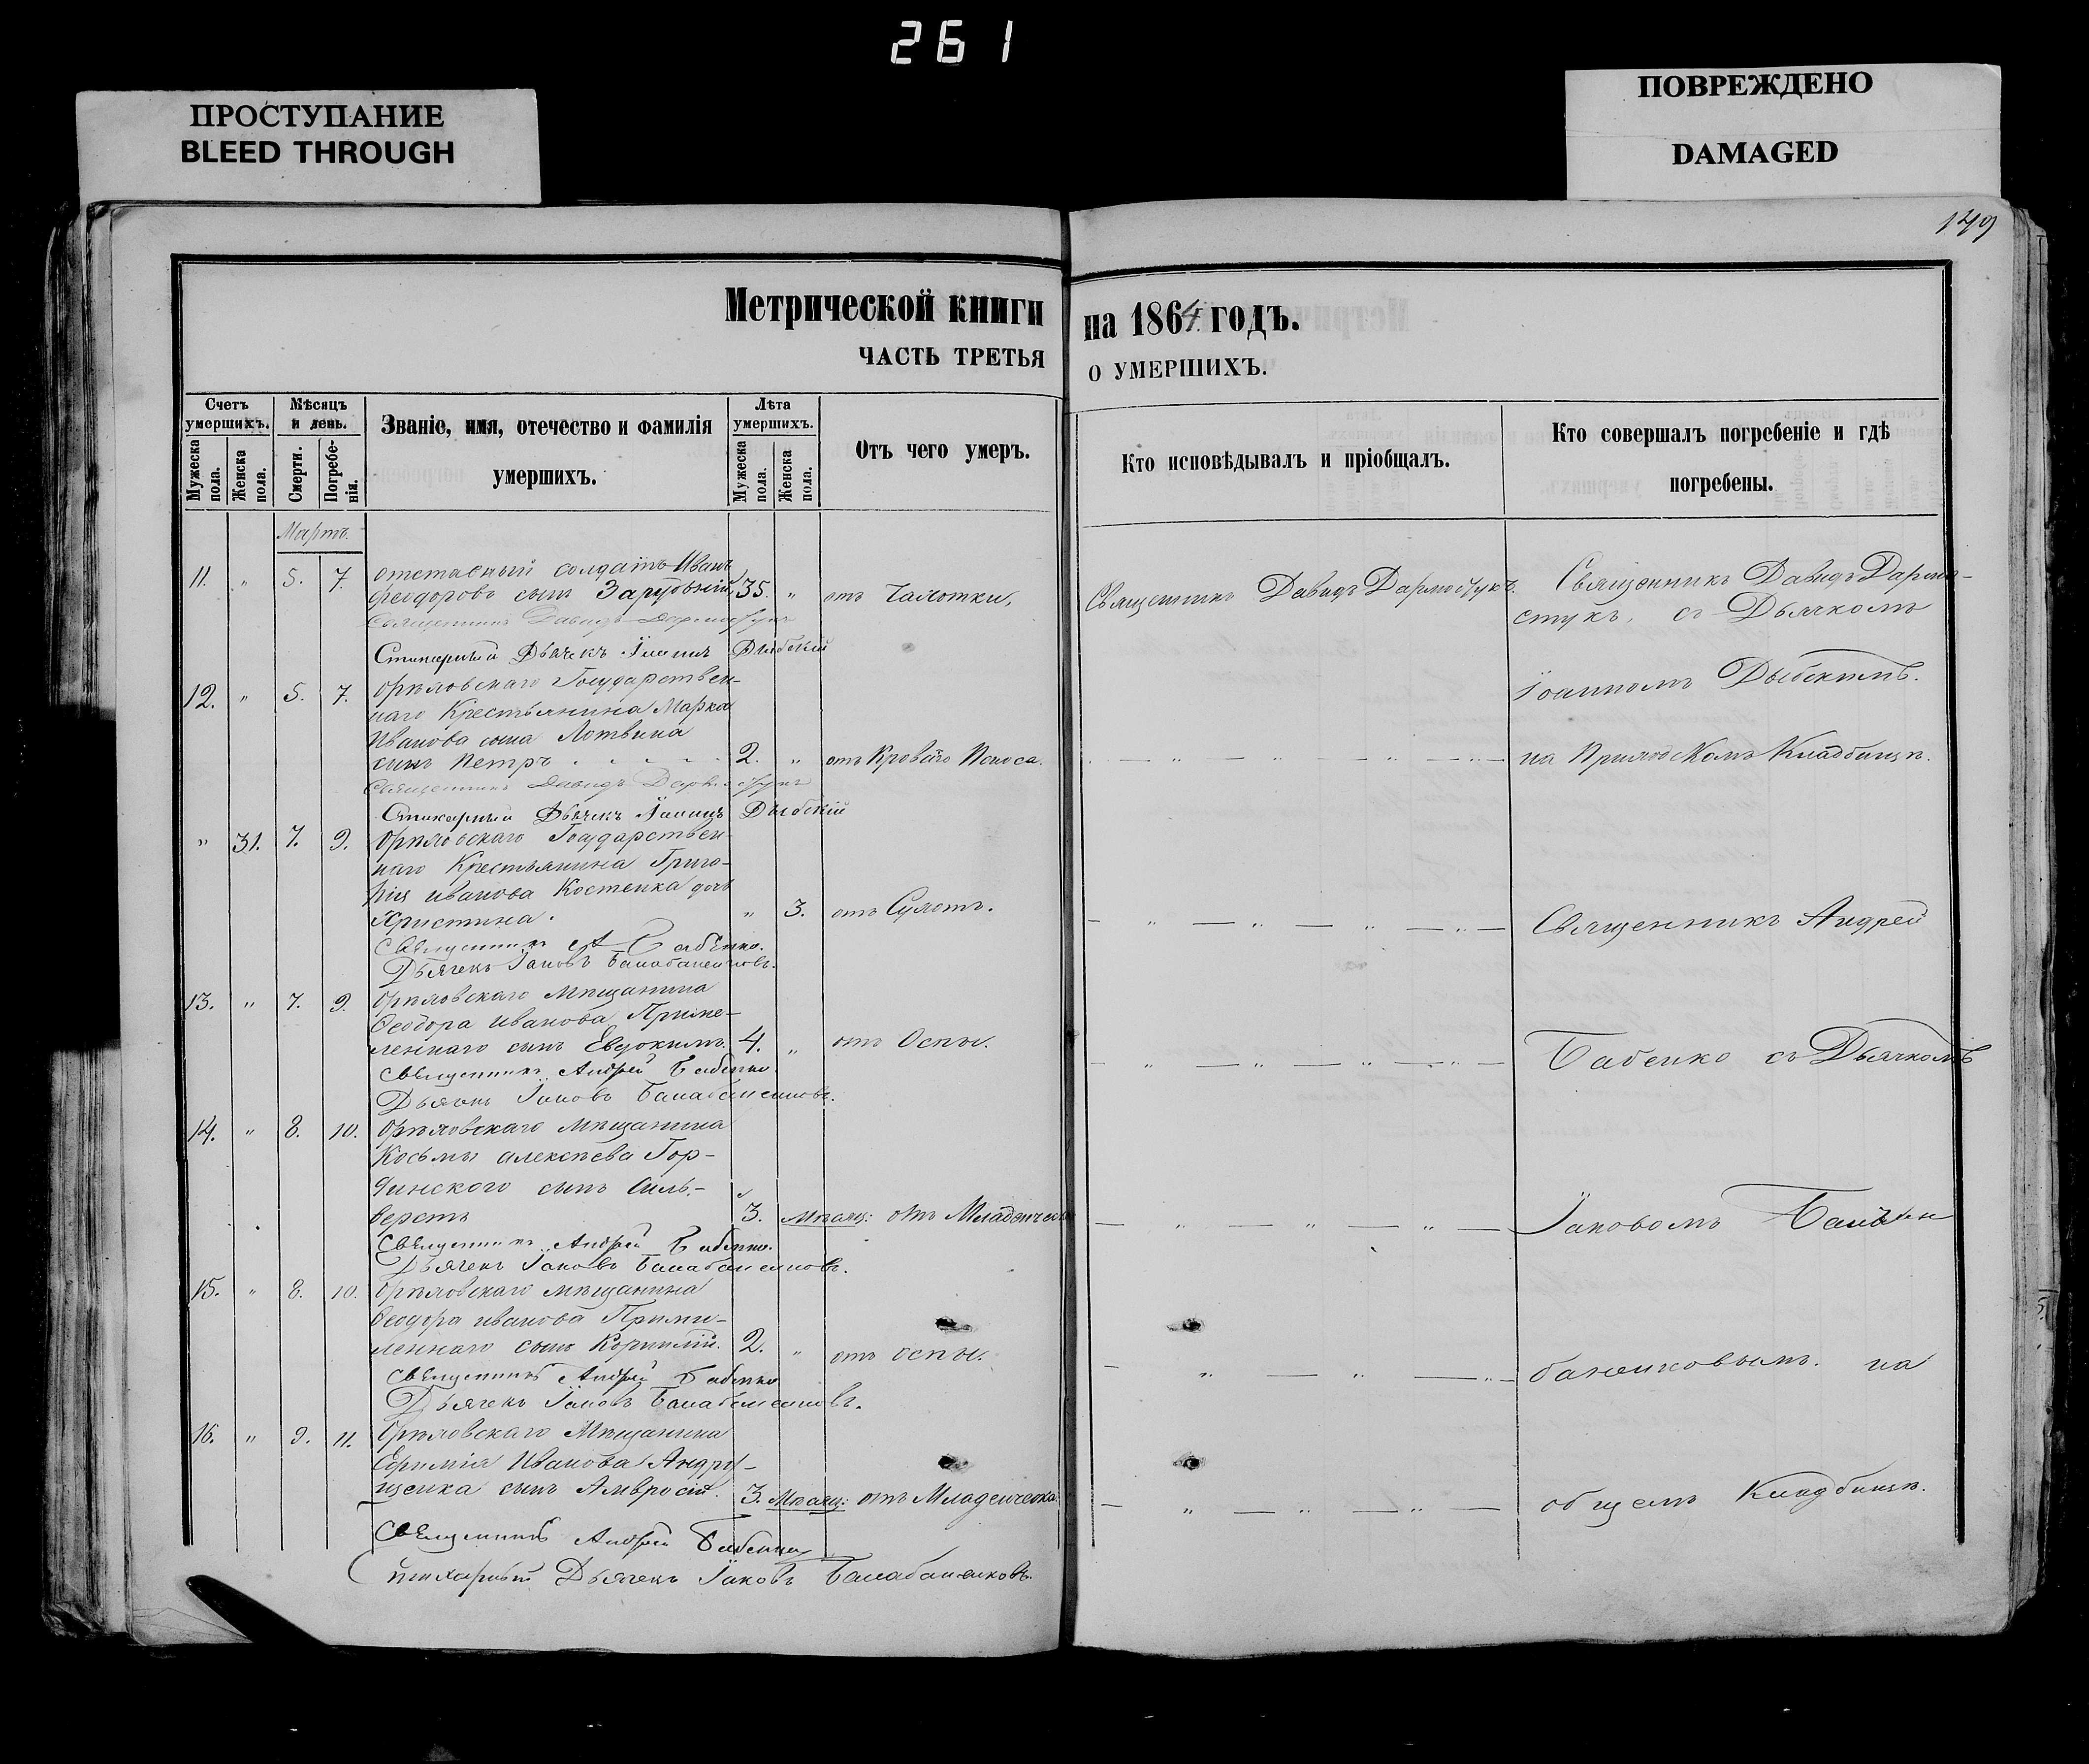 261
ПРОСТУПАНИЕ
BLEED THROUGH
ПОВРЕЖДЕНО
DAMAGED
149
Метрической книги на 1864 годъ.
ЧАСТЬ ТРЕТЬЯ О УМЕРШИХЪ.
Счетъ умершихъ.
Мужеска пола.
Женска пола.
Мѣсяцъ и день.
Смерти.
Погребенія.
Званіе, имя, отечество и фамилія умершихъ.
Лѣта умершихъ.
Мужеска пола.
Женска пола.
Отъ чего умеръ.
Кто исповѣдывалъ и пріобщалъ.
Кто совершалъ погребеніе и гдѣ погребены.
Мартъ.
11. " 5. 7. отставный солдатъ Иванъ
Феодоровъ сынъ 35. " отъ Чахотки, Священникъ Давидъ Дармостукъ. Священникъ Давидъ Дармо-
Священникъ Давидъ Дармостукъ
стукъ, съ Дьячкомъ
Стихарный Дьячекъ Іоаннъ Дыбскій
Іоанномъ Дыбскимъ.
12. " 5. 7. Орѣховскаго Государствен-
наго Крестьянина Марка
Иванова сына Литвина
сынъ Петръ 2. " отъ Кроваго Поноса. на Приходскомъ Кладбищѣ.
Священникъ Давидъ Дармостукъ
Стихарный Дьячекъ Іоаннъ Дыбскій
" 31. 7. 9. Орѣховскаго Государствен-
наго Крестьянина Григо-
рія Иванова Костенка дочь
Христина. " 3. отъ Сухотъ. Священникъ Андрей
Священникъ А Бабенко.
Дьячекъ Іаковъ Балабаненковъ.
13. " 7. 9. Орѣховскаго Мѣщанина
Феодора Иванова
леннаго сынъ Евдокимъ. 4. " отъ Оспы. Бабенко съ Дьячкомъ
Священникъ Андрей Бабенко
Дьячекъ Іаковъ Балабаненковъ.
14. " 8. 10. Орѣховскаго Мѣщанина
Косьмы Алексѣева Гор-
динского сынъ Силь-
верстъ 3. Мѣсяц: отъ Младенческ Іаковомъ Балабан
Священникъ Андрей Бабенко.
Дьячекъ Іаковъ Балабаненковъ.
15. " 8. 10. Орѣховскаго мѣщанина
Феодора Иванова
леннаго сынъ Корнилій. 2. " отъ оспы. баненковымъ. на
Священникъ Андрей Бабенко
Дьячекъ Іаковъ Балабаненковъ.
16. " 9. 11. Орѣховскаго Мѣщанина
Ефимія Иванова Андрю-
щенка сынъ Амвросій. 3. Мѣсяц: отъ Младенческа общемъ Кладбищѣ.
Священникъ Андрей Бабенко
Стихарный Дьячекъ Іаковъ Балабаненковъ.